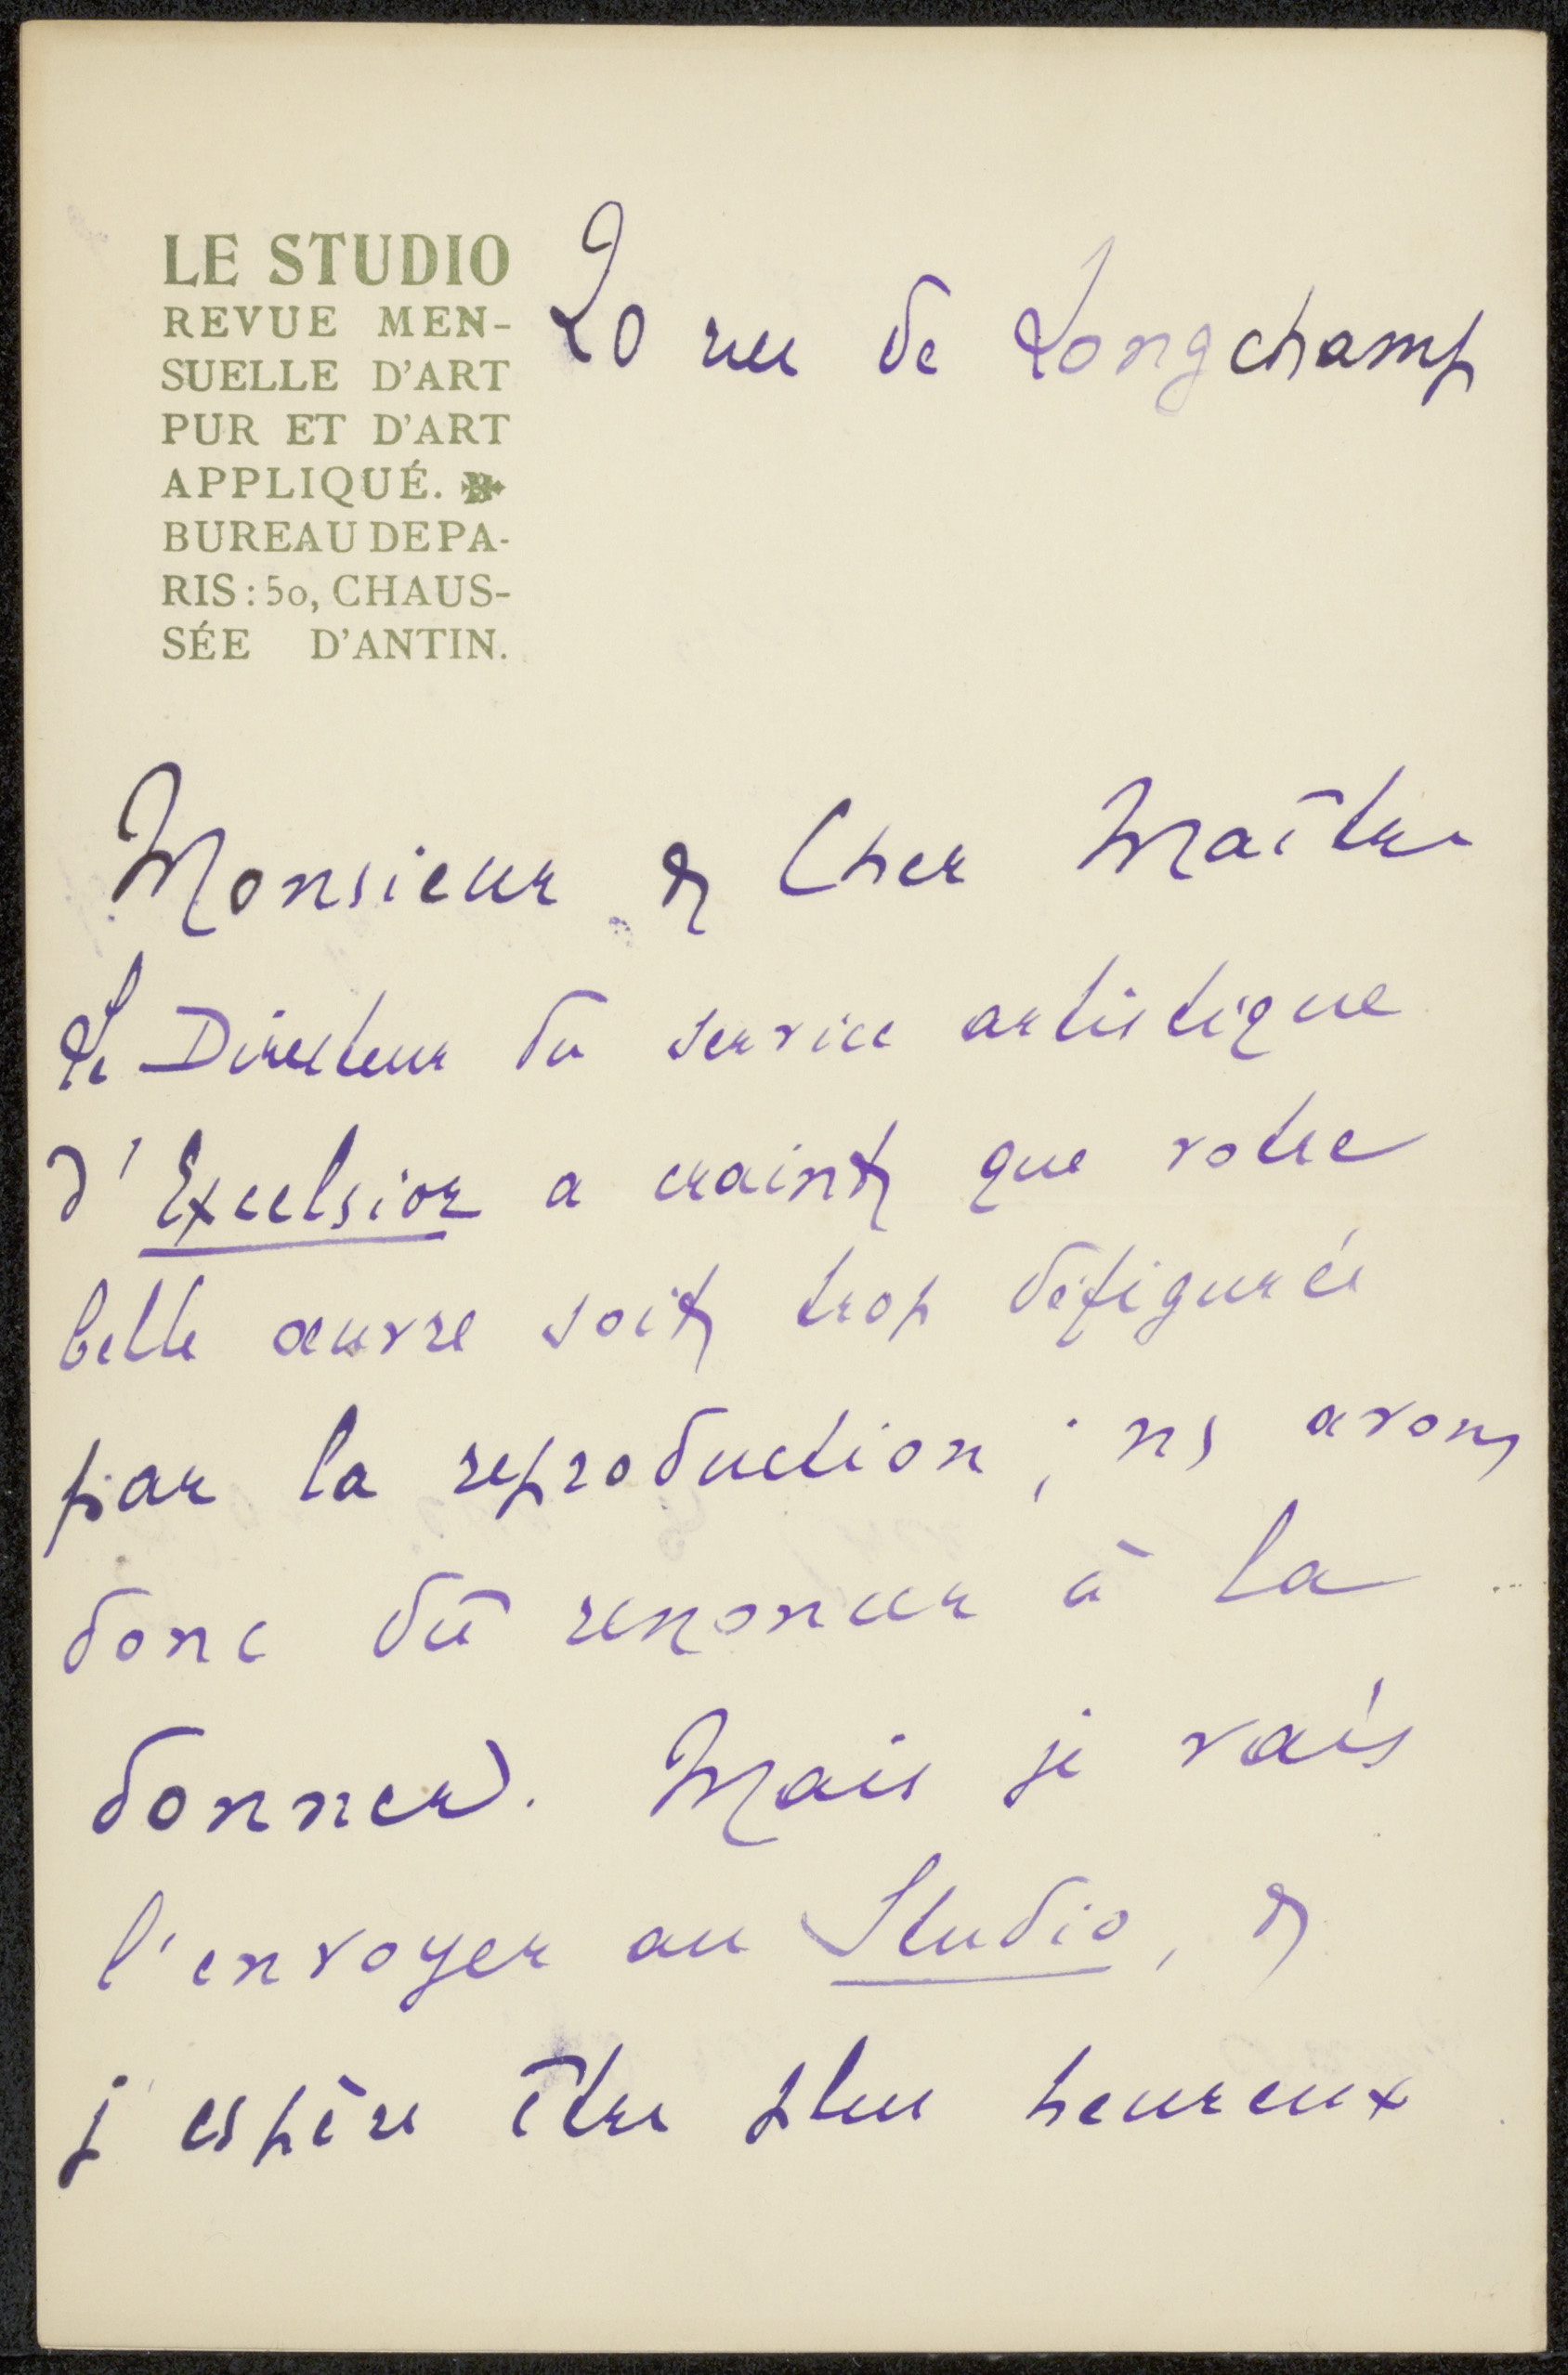 LE STUDIO
REVUE MEN-
SUELLE D'ART
PUR ET D'ART
APPLIQUÉ.
BUREAU DE PA-
RIS : 50, CHAUS-
SÉE D'ANTIN.
20 rue de Longchamp
Monsieur & Cher Maître
Le Directeur du service artistique
d'Excelsior a craint que votre
belle œuvre soit trop défigurée
par la reproduction ; ns avons
donc dû renoncer à la
donner. Mais je vais
l'envoyer au Studio, &
j'espère être plus heureux